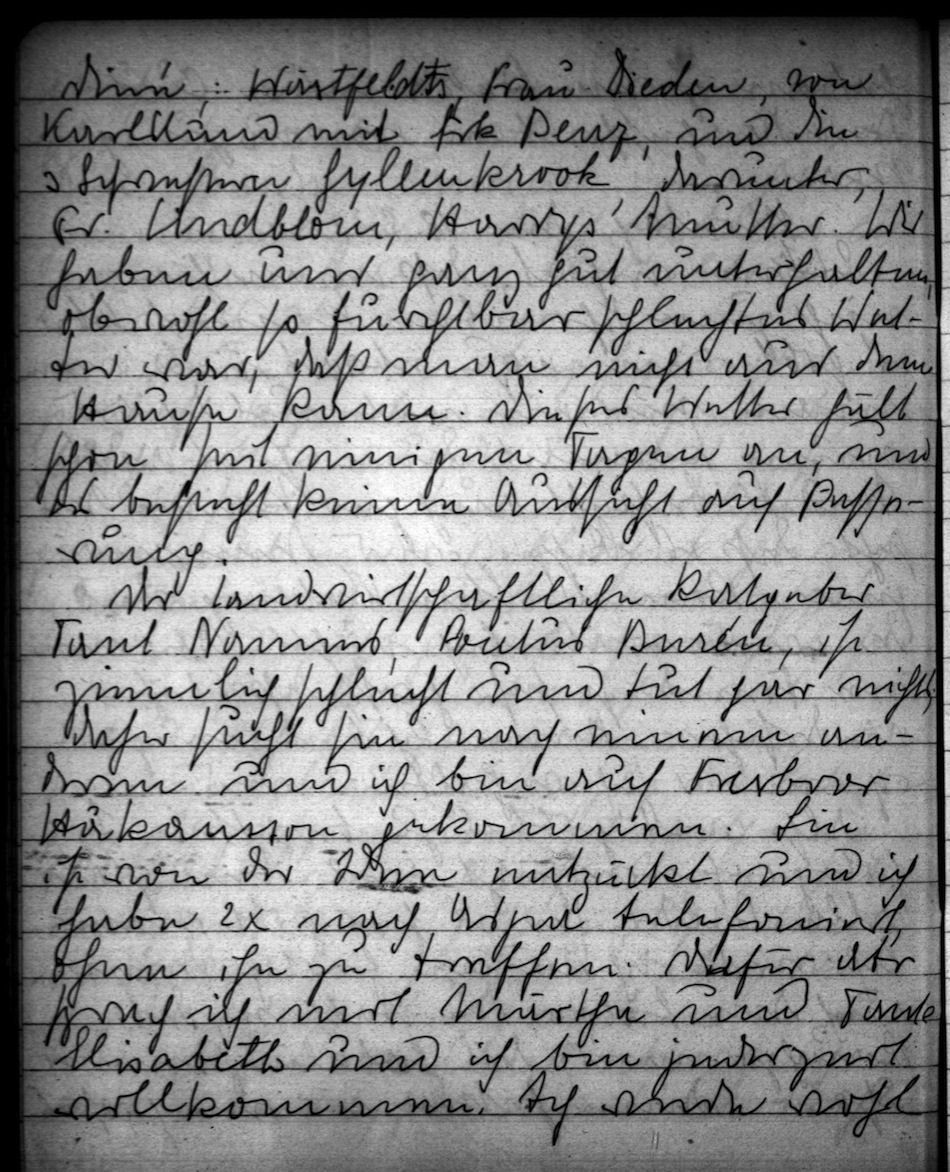 Diné; Wästfeldts, Frau Dieden, von
Karlslund mit Frk Benz, und die
3 Schwestern Gyllenkrook, darunter,
Fr. Lindblom, Harrys' Mutter. Wir
haben uns ganz gut unterhalten,
obwohl so furchtbar schlechtes Wet-
ter war, daß man nicht aus dem
Hause kann. Dieses Wetter hält
schon seit einigen Tagen an, und
es besteht keine Aussicht auf Besse-
rung.
Der landwirtschaftliche Ratgeber
Tant Nannis, Pontus Burén, ist
ziemlich schlecht und tut gar nichts,
daher sucht sie nach einem an-
deren und ich bin auf Farbror
Håkansson gekommen. Sie
ist von der Idee entzückt und ich
habe 2x nach Aspa telefoniert,
ohne ihn zu treffen. Dafür aber
sprach ich mit Märtha und Tante
Elisabeth und ich bin jederzeit
willkommen. Ich werde wohl